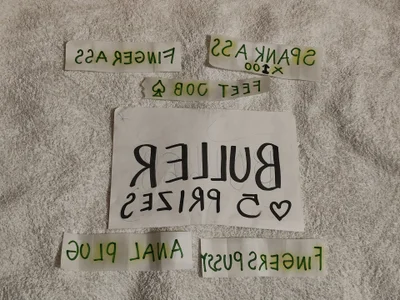 SPANK ASS
X100
FINGER ASS
FEET JOB ♠
BULLER
♡ 5 PRIZES
FINGERS PUSSY
ANAL PLUG